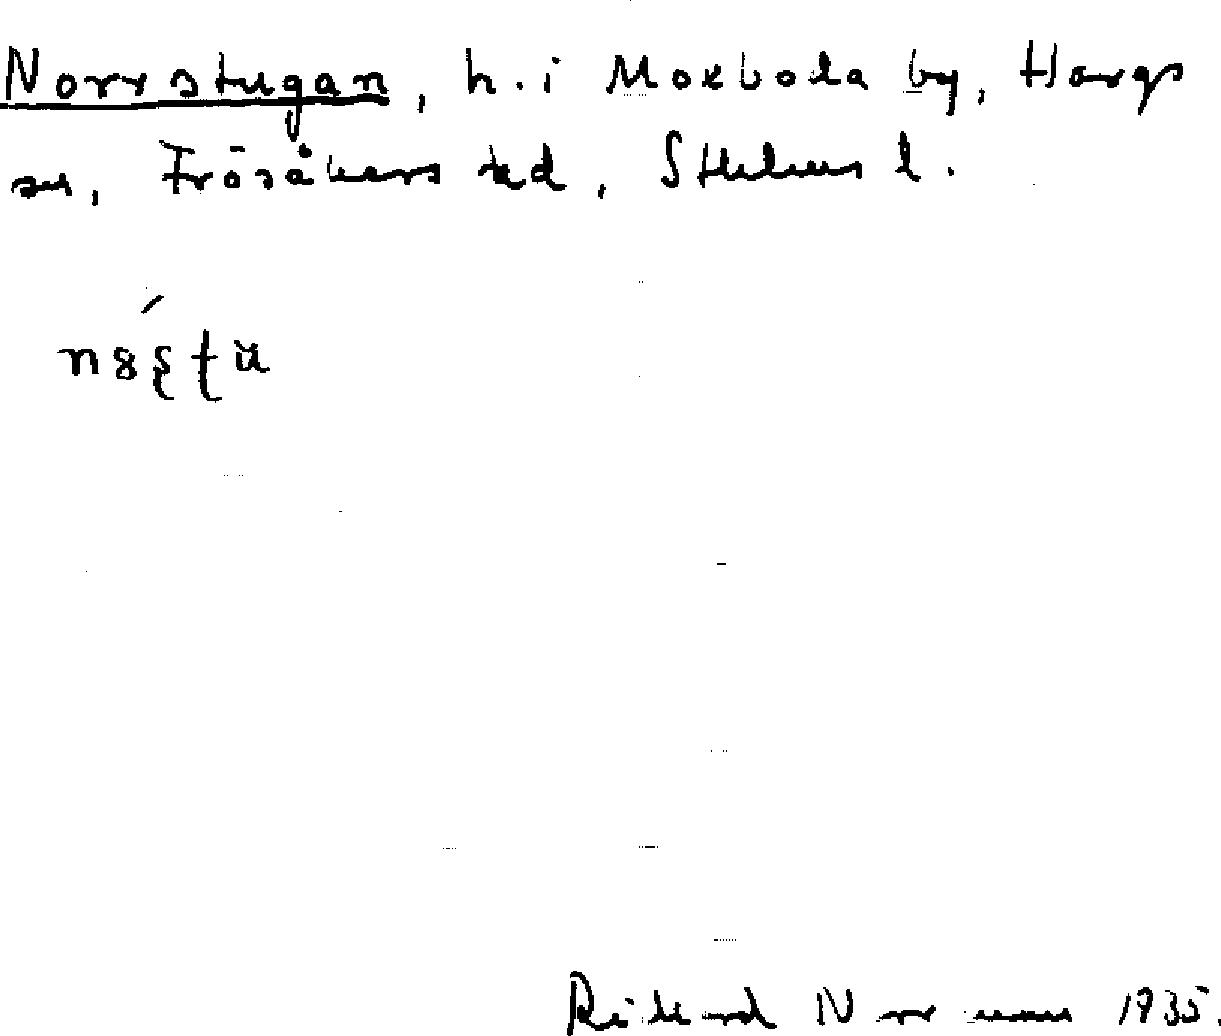 Norrstugan, h. i Mokbola by, Hargs
sn, Frösåkers hd, Sthlms l.
Rickard Norrman 1935.